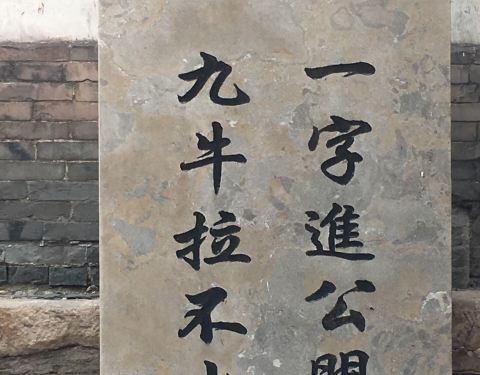 一字進公門
九牛拉不